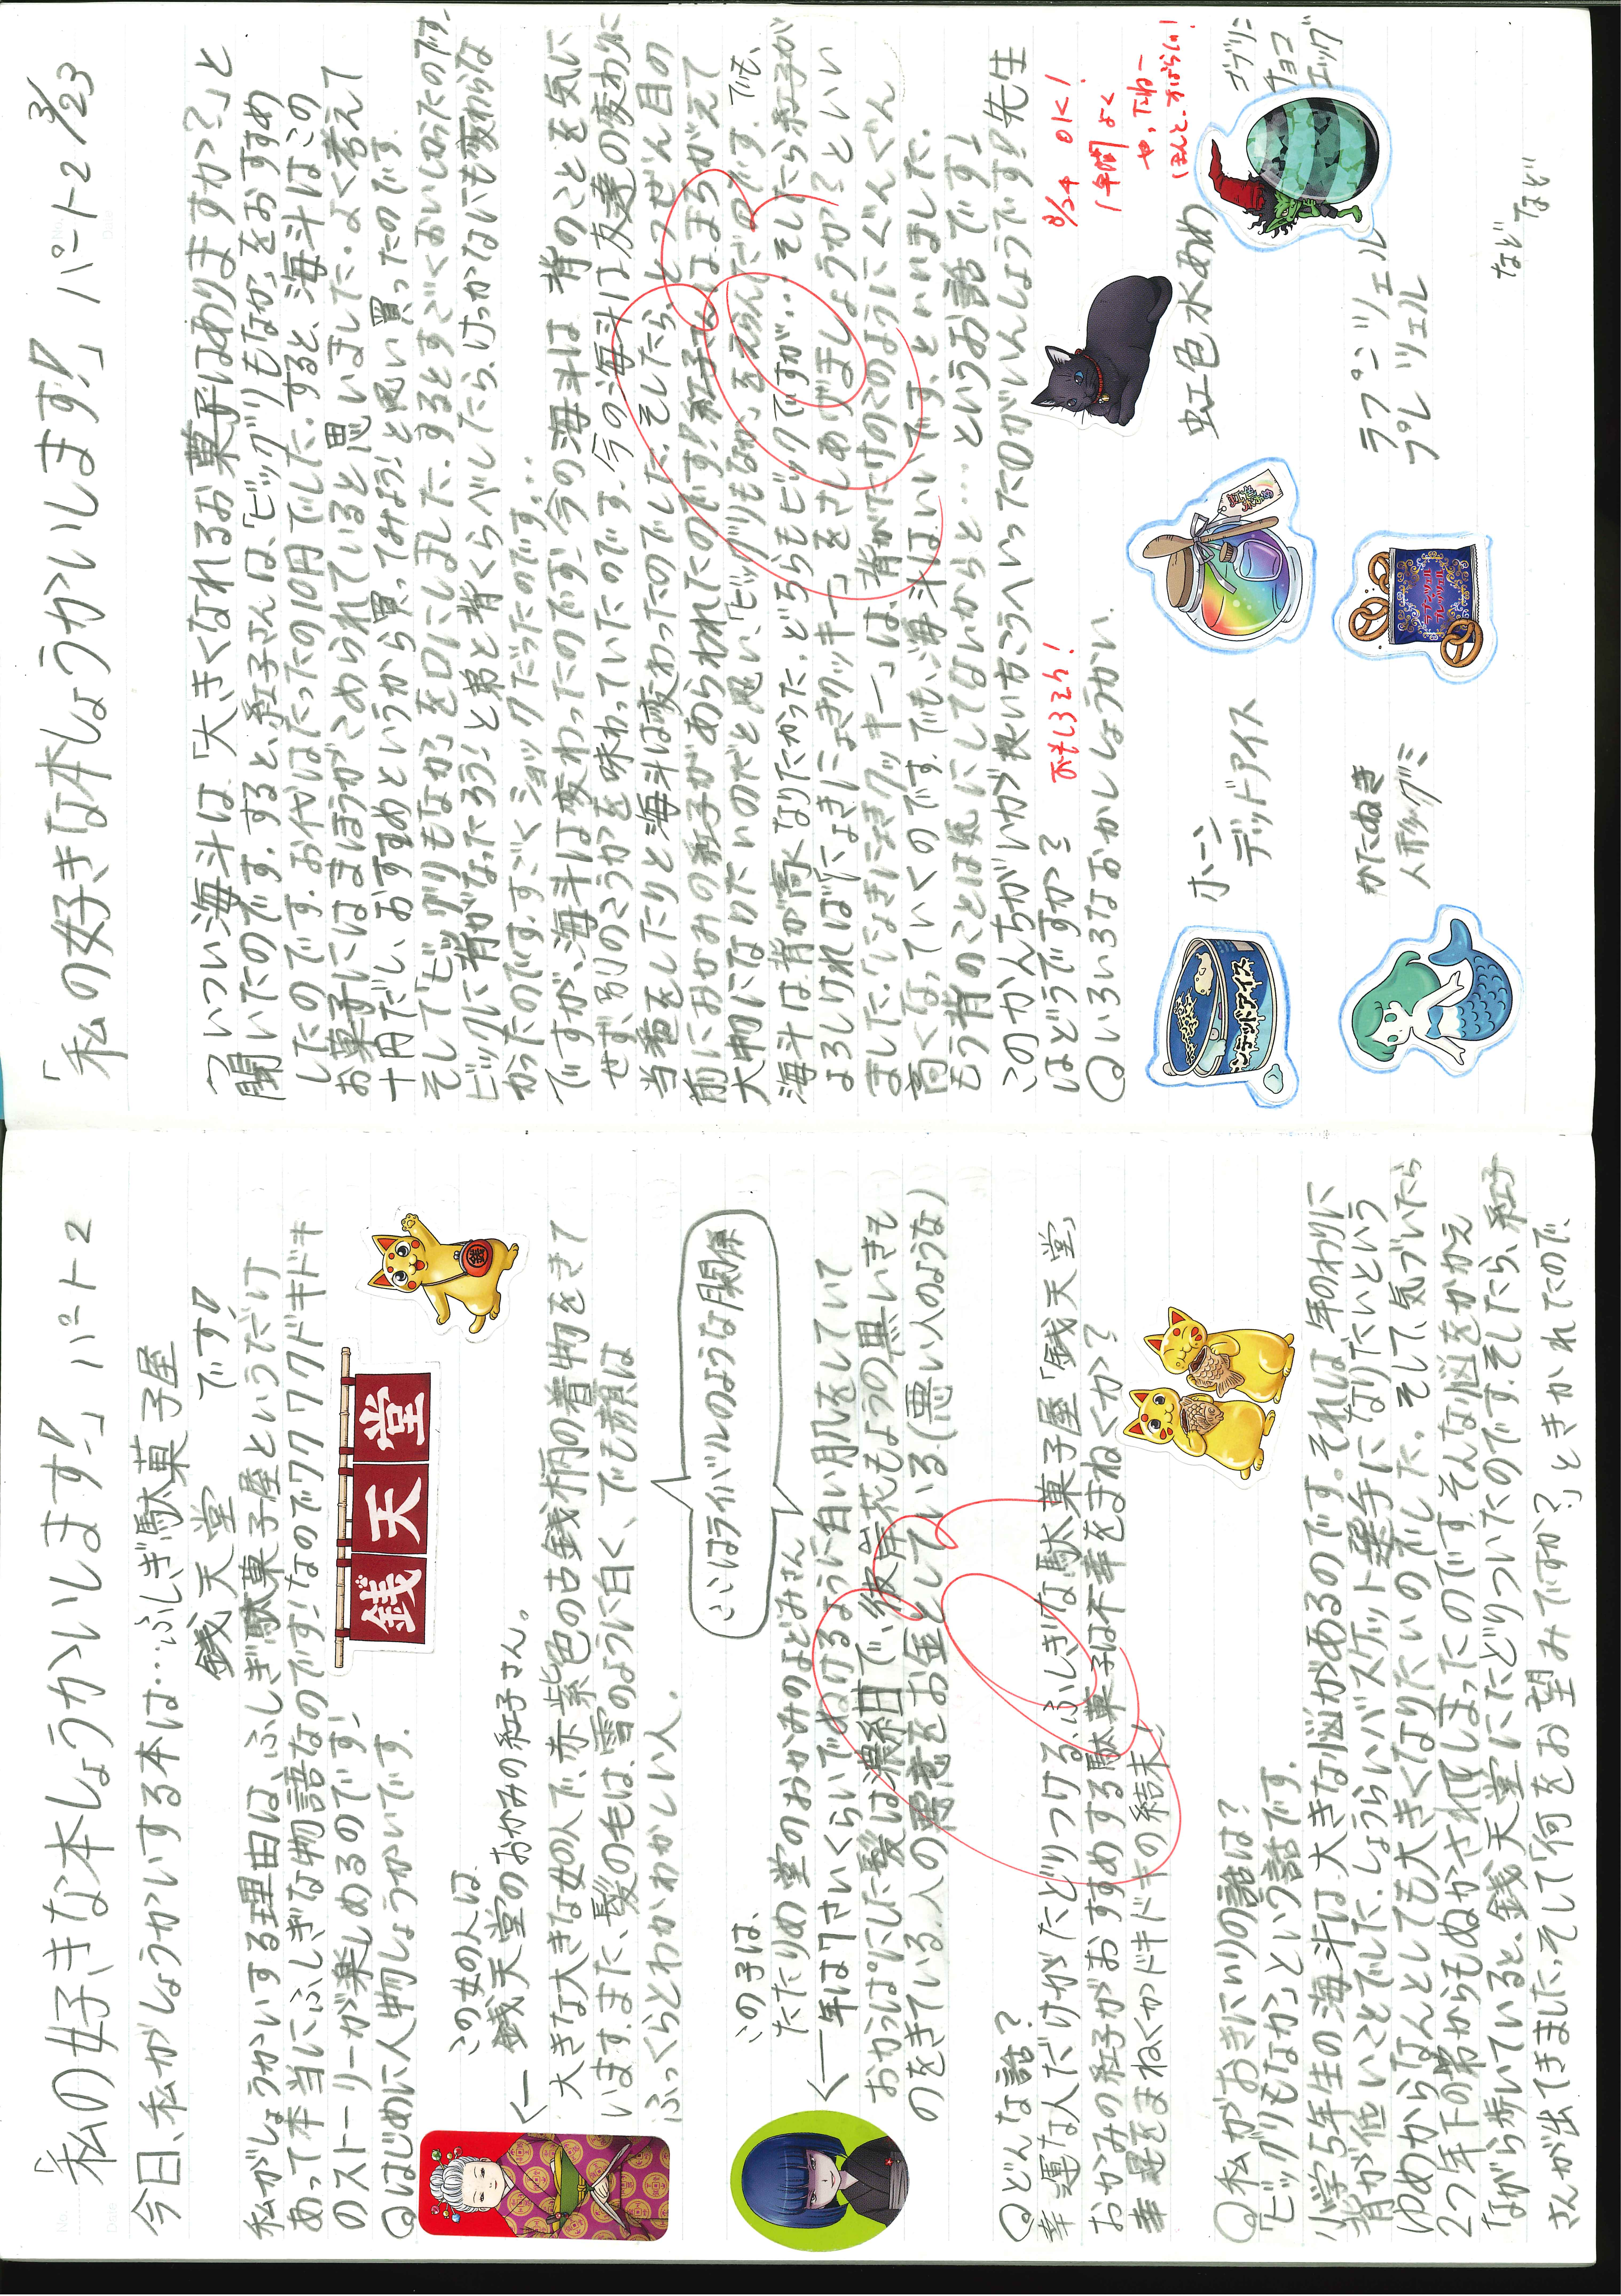 「私の好きな本しょうかいします!!」パート2
今日、私がしょうかいする本は…ふしぎ駄菓子屋
銭天堂 です!!
私がしょうかいする理由は、ふしぎ駄菓子屋というだけ
あって本当にふしぎな物語なのです!なのでワクワクドキドキ
のストーリーが楽しめるのです!
銭天堂
銭
◎はじめに人物しょうかいです.
この女の人は、
銭天堂のおかみの紅子さん。
大きな大きな女の人で、赤紫色の古銭柄の着物をきて
います.また、髪の毛は、雪のように白く、でも顔は
ふっくらとわかわかしい人.
ここはライバルのような関係
この子は、
たたりめ堂のおかみのよどみさん
年は7さいくらいでぬけるように白い肌をしていて
おかっぱにした髪は濃紺で、彼岸花もようの黒いきも
のをきている.人の悪意をお金としている.(悪い人のような)
◎どんな話?
幸運な人だけがたどりつける、ふしぎな駄菓子屋「銭天堂」
おかみの紅子がおすすめする駄菓子は不幸をまねくか?
幸運をまねくかドキドキの結末!
◎私がおきにいりの話は?
「ビックリもなか」という話です.
小学5年生の海斗は、大きな悩があるのです.それは年のわりに
背が低いことでした.しょうらいバスケット選手になりたいという
ゆめからなんとしても大きくなりたいのでした。そして、気づいたら
2つ年下の弟からもぬかされてしまったのです.そんな悩をかかえ
ながら歩いていると、銭天堂にたどりついたのです.そしたら、紅子
さんが出てきました.そして「何をお望みですか?」ときかれたので、
「私の好きな本しょうかいします!!」パート2 3/23
ついつい海斗は「大きくなれるお菓子はありますか?」と
聞いたのです.すると、紅子さんは、「ビックリもなか」をおすすめ
したのです.お代はたったの10円でした.すると、海斗はこの
お菓子にはまほうがこめられていると思いました.よく考えて
十円だし、おすすめというから買ってみよう!と思い買ったのです.
そして「ビックリもなか」を口にしました.するとすごくおいしかったのです.
ビックに背がなったろう!と弟と背くらべしたら、けっかなにも変わらな
かったのです.すごくショックだったのです…
ですが、海斗は変わったのです!今の海斗は背のことを気に
せず、別のこうかを味わっていたのです.今の海斗は友達の変わりに
当番をしたりと海斗は変わったのでした.そしたら、とつぜん目の
前におかみの紅子があらわれたのです!紅子さんはまちがえて
大物になりたいのだと思い、「ビックリもなか」をえらんだのです.でも、
海斗は背が高くなりたかった.どちらもビックですが‥そしたら紅子が
よろしければ「にょきにょきクッキー」をさしあげましょうか?といい
ました.「にょきにょきクッキー」は、背がたけのこのようにぐんぐん
高くなっていくのです.でも、海斗はいいです、といいました.
もう背のことは気にしてないからと…というお話です!
このかんちがいが良いほうへいった所がいんしょうです!先生
はどうですか?
おもしろそう!
3/24 OK!
1年間よく
やったねー
ほんと、すばらしい!
◎いろいろなおかししょうかい.
ホーン
デッドアイス
ンデッドアイス
虹色水あめ
虹色水あめ
ゴブリン
チョコ
エッグ
かたぬき
人形グミ
ラプンツェル
プレッツェル
ラプンツェル
プレッツェル
などなど